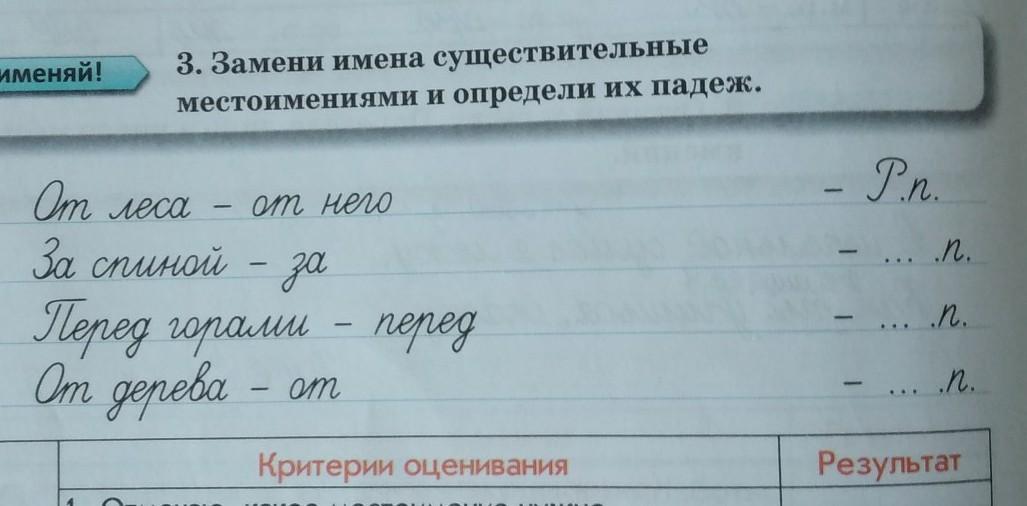 именяй!
3. Замени имена существительные
местоимениями и определи их падеж.
От леса – от него – Р.п.
За спиной – за – ... .п.
Перед горами – перед – ... .п.
От дерева – от – ... .п.
Критерии оценивания Результат